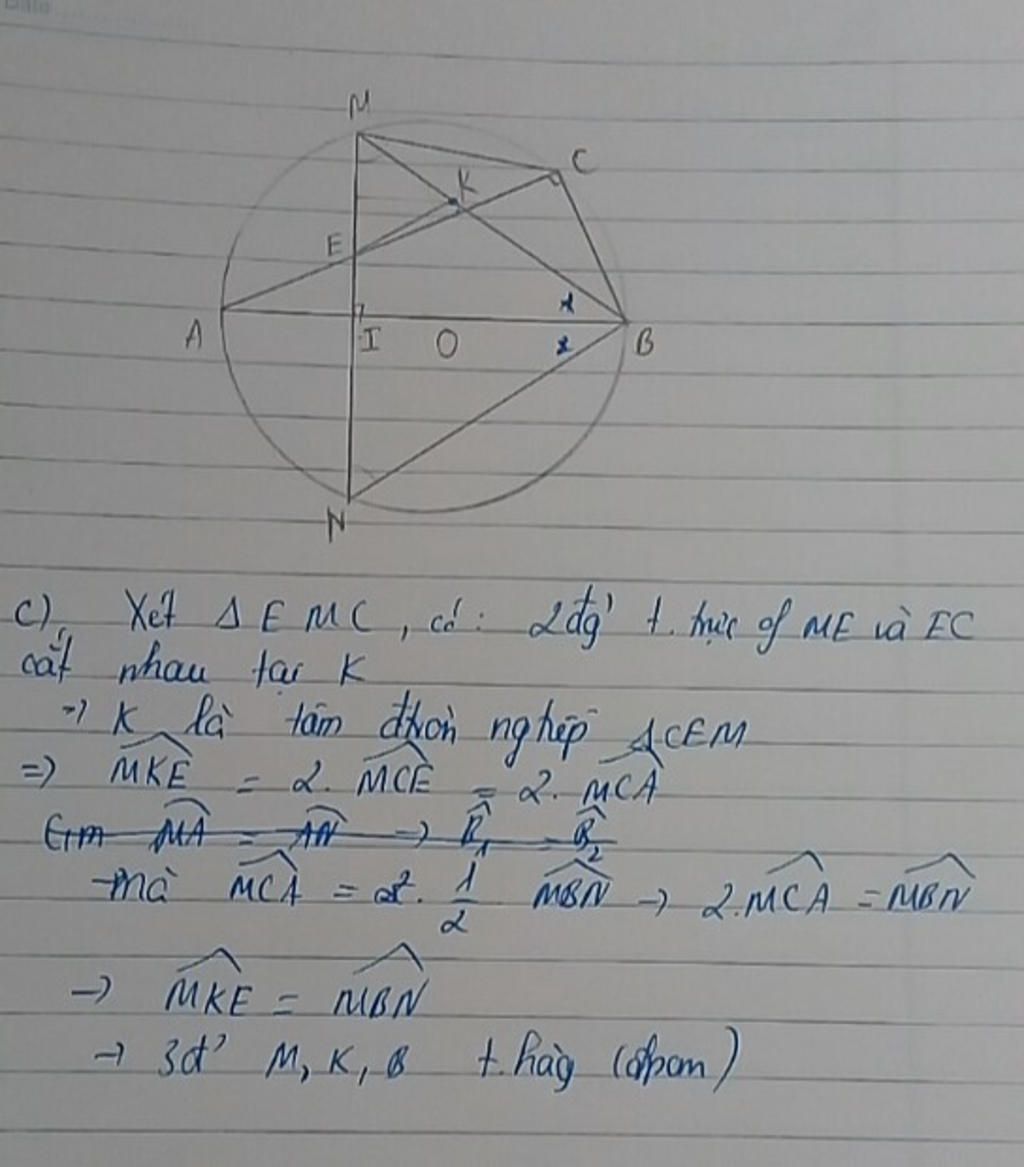 Date
M
C
K
E
1
A
I
O
2
B
N
c), Xét Δ EMC, có: 2đg' t. trực of ME và EC
cắt nhau tại K
=> K là tâm đtròn ngtiếp ΔCEM
=> MKE = 2. MCE = 2. MCA
MA = AN → B1 = B2
mà MCA = 1/2 MBN → 2.MCA = MBN
→ MKE = MBN
→ 3đ' M, K, B t.hàg (đpcm)